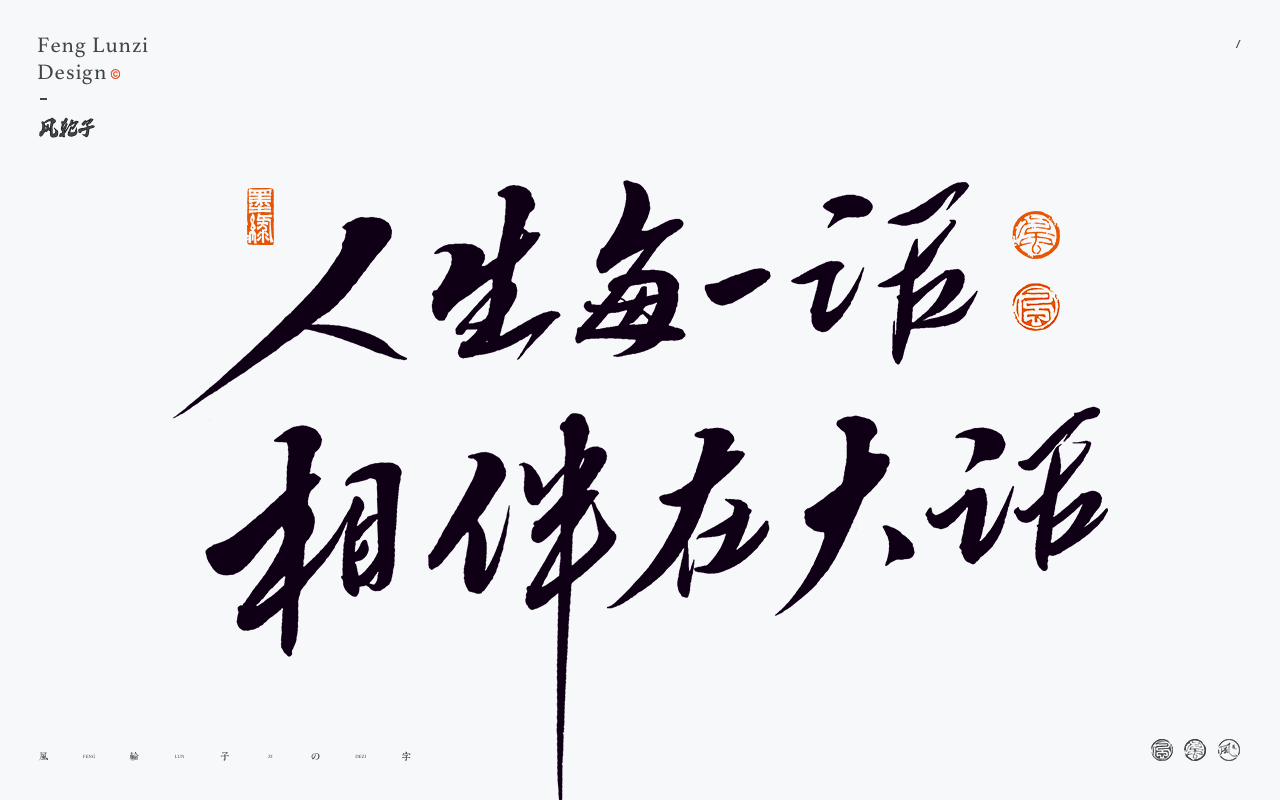 Feng Lunzi
Design©
-
风轮子
/
人生每一话
相伴在大话
風 FENG 輪 LUN 子 ZI の DEZI 字